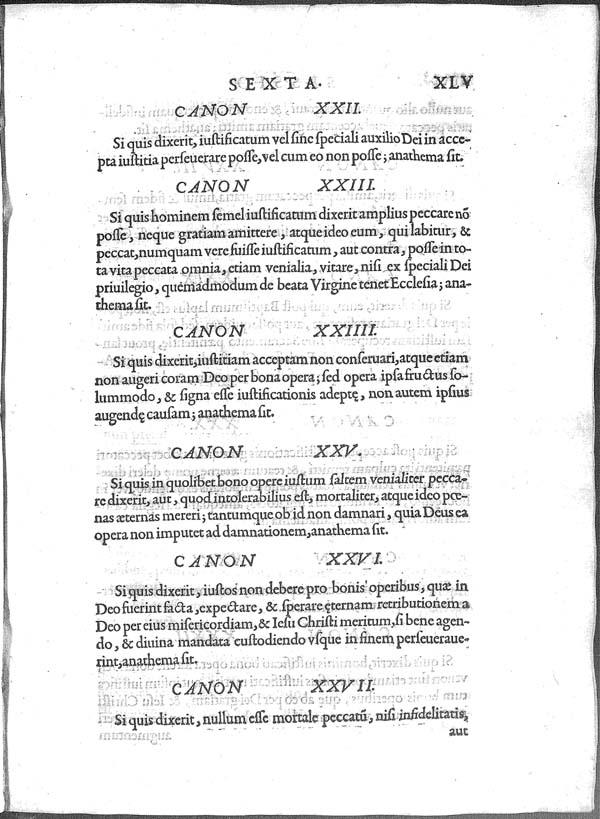 SEXTA. XLV
CANON XXII.
Si quis dixerit, iustificatum vel sine speciali auxilio Dei in acce-
pta iustitia perseuerare posse, vel cum eo non posse; anathema sit.
CANON XXIII.
Si quis hominem semel iustificatum dixerit amplius peccare nõ
posse, neque gratiam amittere, atque ideo eum, qui labitur, &
peccat, numquam vere fuisse iustificatum, aut contra, posse in to-
ta vita peccata omnia, etiam venialia, vitare, nisi ex speciali Dei
priuilegio, quemadmodum de beata Virgine tenet Ecclesia; ana-
thema sit.
CANON XXIIII.
Si quis dixerit, iustitiam acceptam non conseruari, atque etiam
non augeri coram Deo per bona opera; sed opera ipsa fructus so-
lummodo, & signa esse iustificationis adeptę, non autem ipsius
augendę causam; anathema sit.
CANON XXV.
Si quis in quolibet bono opere iustum saltem venialiter pecca-
re dixerit, aut, quod intolerabilius est, mortaliter, atque ideo pœ-
nas æternas mereri; tantumque ob id non damnari, quia Deus ea
opera non imputet ad damnationem, anathema sit.
CANON XXVI.
Si quis dixerit, iustos non debere pro bonis operibus, quæ in
Deo fuerint facta, expectare, & sperare ęternam retributionem a
Deo per eius misericordiam, & Iesu Christi meritum, si bene agen-
do, & diuina mandata custodiendo vsque in finem perseueraue-
rint, anathema sit.
CANON XXVII.
Si quis dixerit, nullum esse mortale peccatũ, nisi infidelitatis,
aut